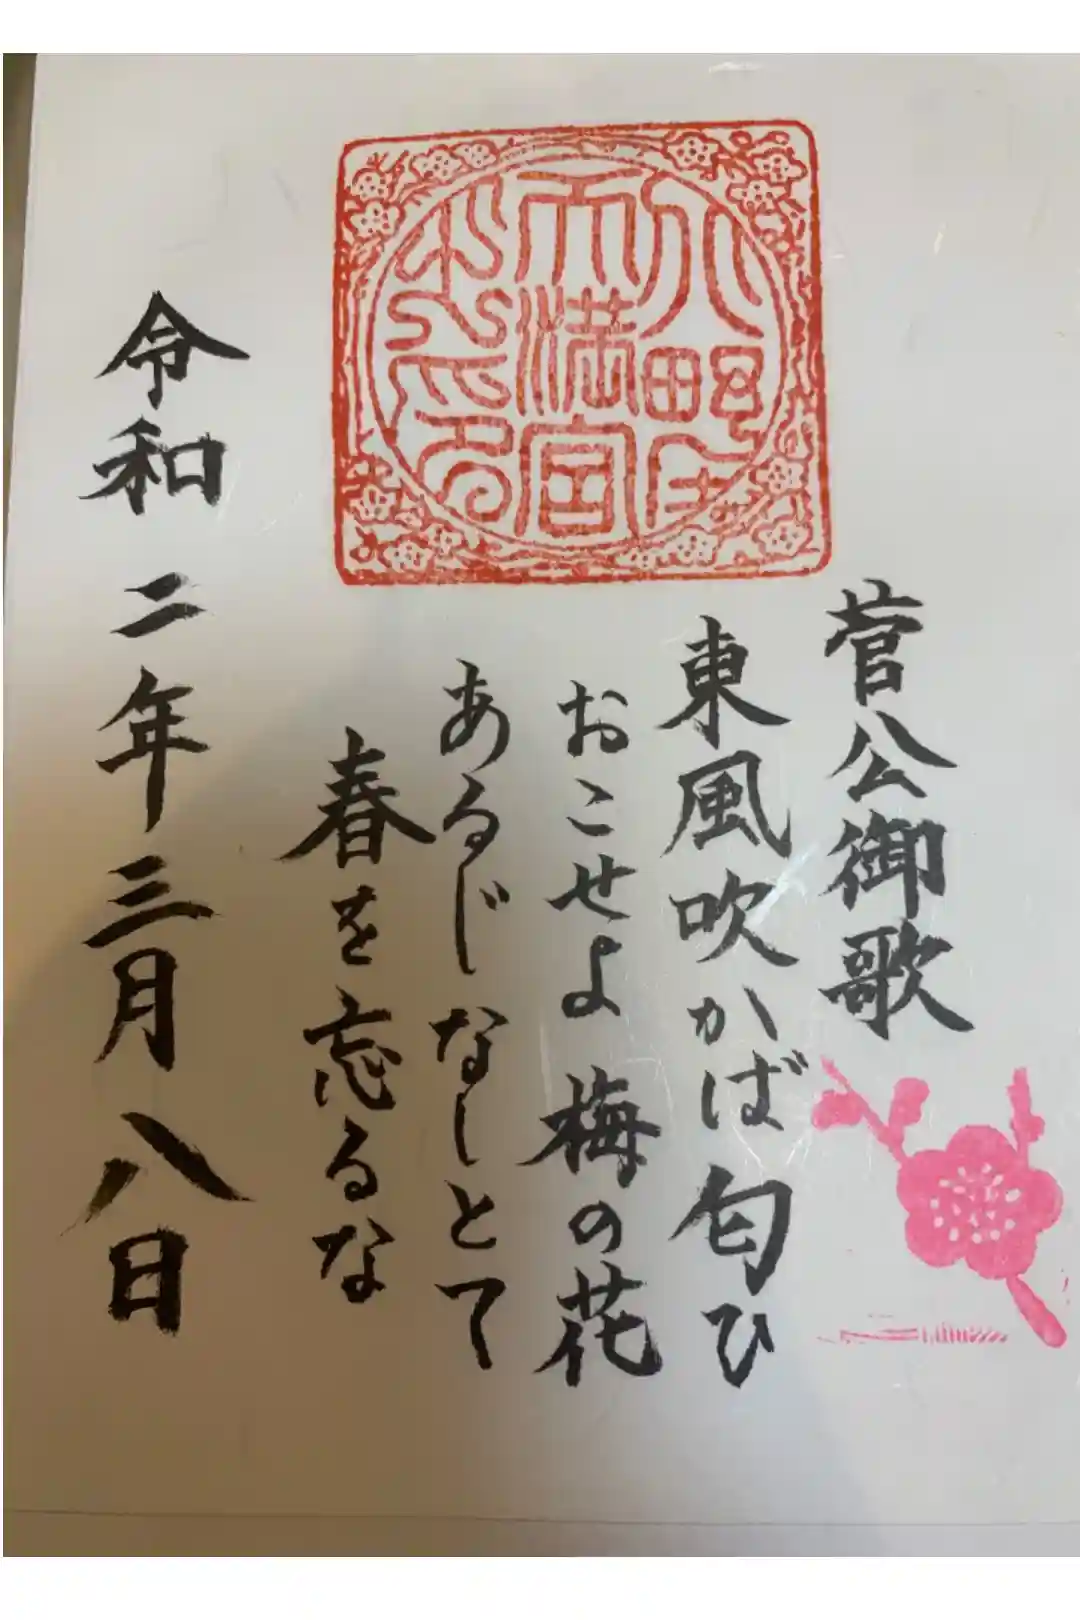 天満宮
菅公御歌
東風吹かば匂ひ
おこせよ梅の花
あるじなしとて
春を忘るな
令和二年三月八日